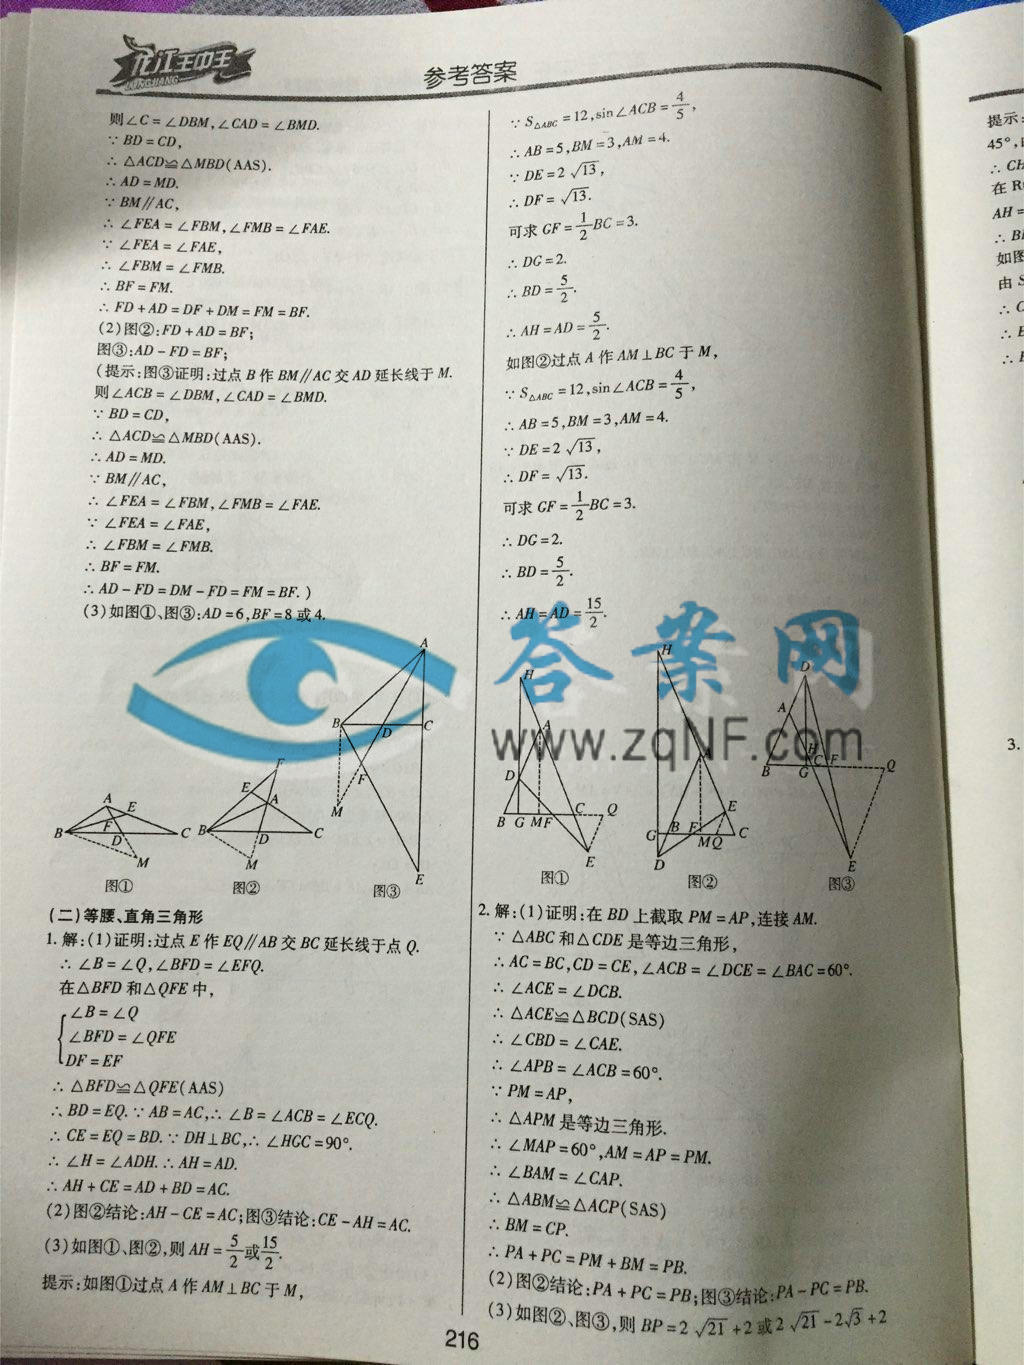 龙江王中王
LONGJIANG
参考答案
则∠C=∠DBM,∠CAD=∠BMD.
∵BD=CD,
∴△ACD≌△MBD(AAS).
∴AD=MD.
∵BM∥AC,
∴∠FEA=∠FBM,∠FMB=∠FAE.
∵∠FEA=∠FAE,
∴∠FBM=∠FMB.
∴BF=FM.
∴FD+AD=DF+DM=FM=BF.
(2)图②:FD+AD=BF;
图③:AD-FD=BF;
(提示:图③证明:过点B作BM∥AC交AD延长线于M.
则∠ACB=∠DBM,∠CAD=∠BMD.
∵BD=CD,
∴△ACD≌△MBD(AAS).
∴AD=MD.
∵BM∥AC,
∴∠FEA=∠FBM,∠FMB=∠FAE.
∵∠FEA=∠FAE,
∴∠FBM=∠FMB.
∴BF=FM.
∴AD-FD=DM-FD=FM=BF.)
(3)如图①、图③:AD=6,BF=8或4.
A
B
D
C
F
M
E
图③
A
E
B
F
D
C
M
图①
F
E
A
B
D
C
M
图②
(二)等腰、直角三角形
1.解:(1)证明:过点E作EQ∥AB交BC延长线于点Q.
∴∠B=∠Q,∠BFD=∠EFQ.
在△BFD和△QFE中,
∠B=∠Q
∠BFD=∠QFE
DF=EF
∴△BFD≌△QFE(AAS)
∴BD=EQ.∵AB=AC,∴∠B=∠ACB=∠ECQ.
∴CE=EQ=BD.∵DH⊥BC,∴∠HGC=90°.
∴∠H=∠ADH.∴AH=AD.
∴AH+CE=AD+BD=AC.
(2)图②结论:AH-CE=AC;图③结论:CE-AH=AC.
(3)如图①、图②,则AH=5/2或15/2.
提示:如图①过点A作AM⊥BC于M,
∵S△ABC=12,sin∠ACB=4/5,
∴AB=5,BM=3,AM=4.
∵DE=2√13,
∴DF=√13.
可求GF=1/2BC=3.
∴DG=2.
∴BD=5/2.
∴AH=AD=5/2.
如图②过点A作AM⊥BC于M,
∵S△ABC=12,sin∠ACB=4/5,
∴AB=5,BM=3,AM=4.
∵DE=2√13,
∴DF=√13.
可求GF=1/2BC=3.
∴DG=2.
∴BD=5/2.
∴AH=AD=15/2.
答案网
www.zqNF.com
H
A
D
B G M F C Q
E
图①
H
A
E
G B F M Q C
D
图②
D
A
H
B G C F Q
E
图③
2.解:(1)证明:在BD上截取PM=AP,连接AM.
∵△ABC和△CDE是等边三角形,
∴AC=BC,CD=CE,∠ACB=∠DCE=∠BAC=60°.
∴∠ACE=∠DCB.
∴△ACE≌△BCD(SAS)
∴∠CBD=∠CAE.
∴∠APB=∠ACB=60°.
∵PM=AP,
∴△APM是等边三角形.
∴∠MAP=60°,AM=AP=PM.
∴∠BAM=∠CAP.
∴△ABM≌△ACP(SAS)
∴BM=CP.
∴PA+PC=PM+BM=PB.
(2)图②结论:PA+PC=PB;图③结论:PA-PC=PB.
(3)如图②、图③,则BP=2√21+2或2√21-2√3+2
216
提示:
45°,
∴CH
在R
AH=
如图
由S
3.